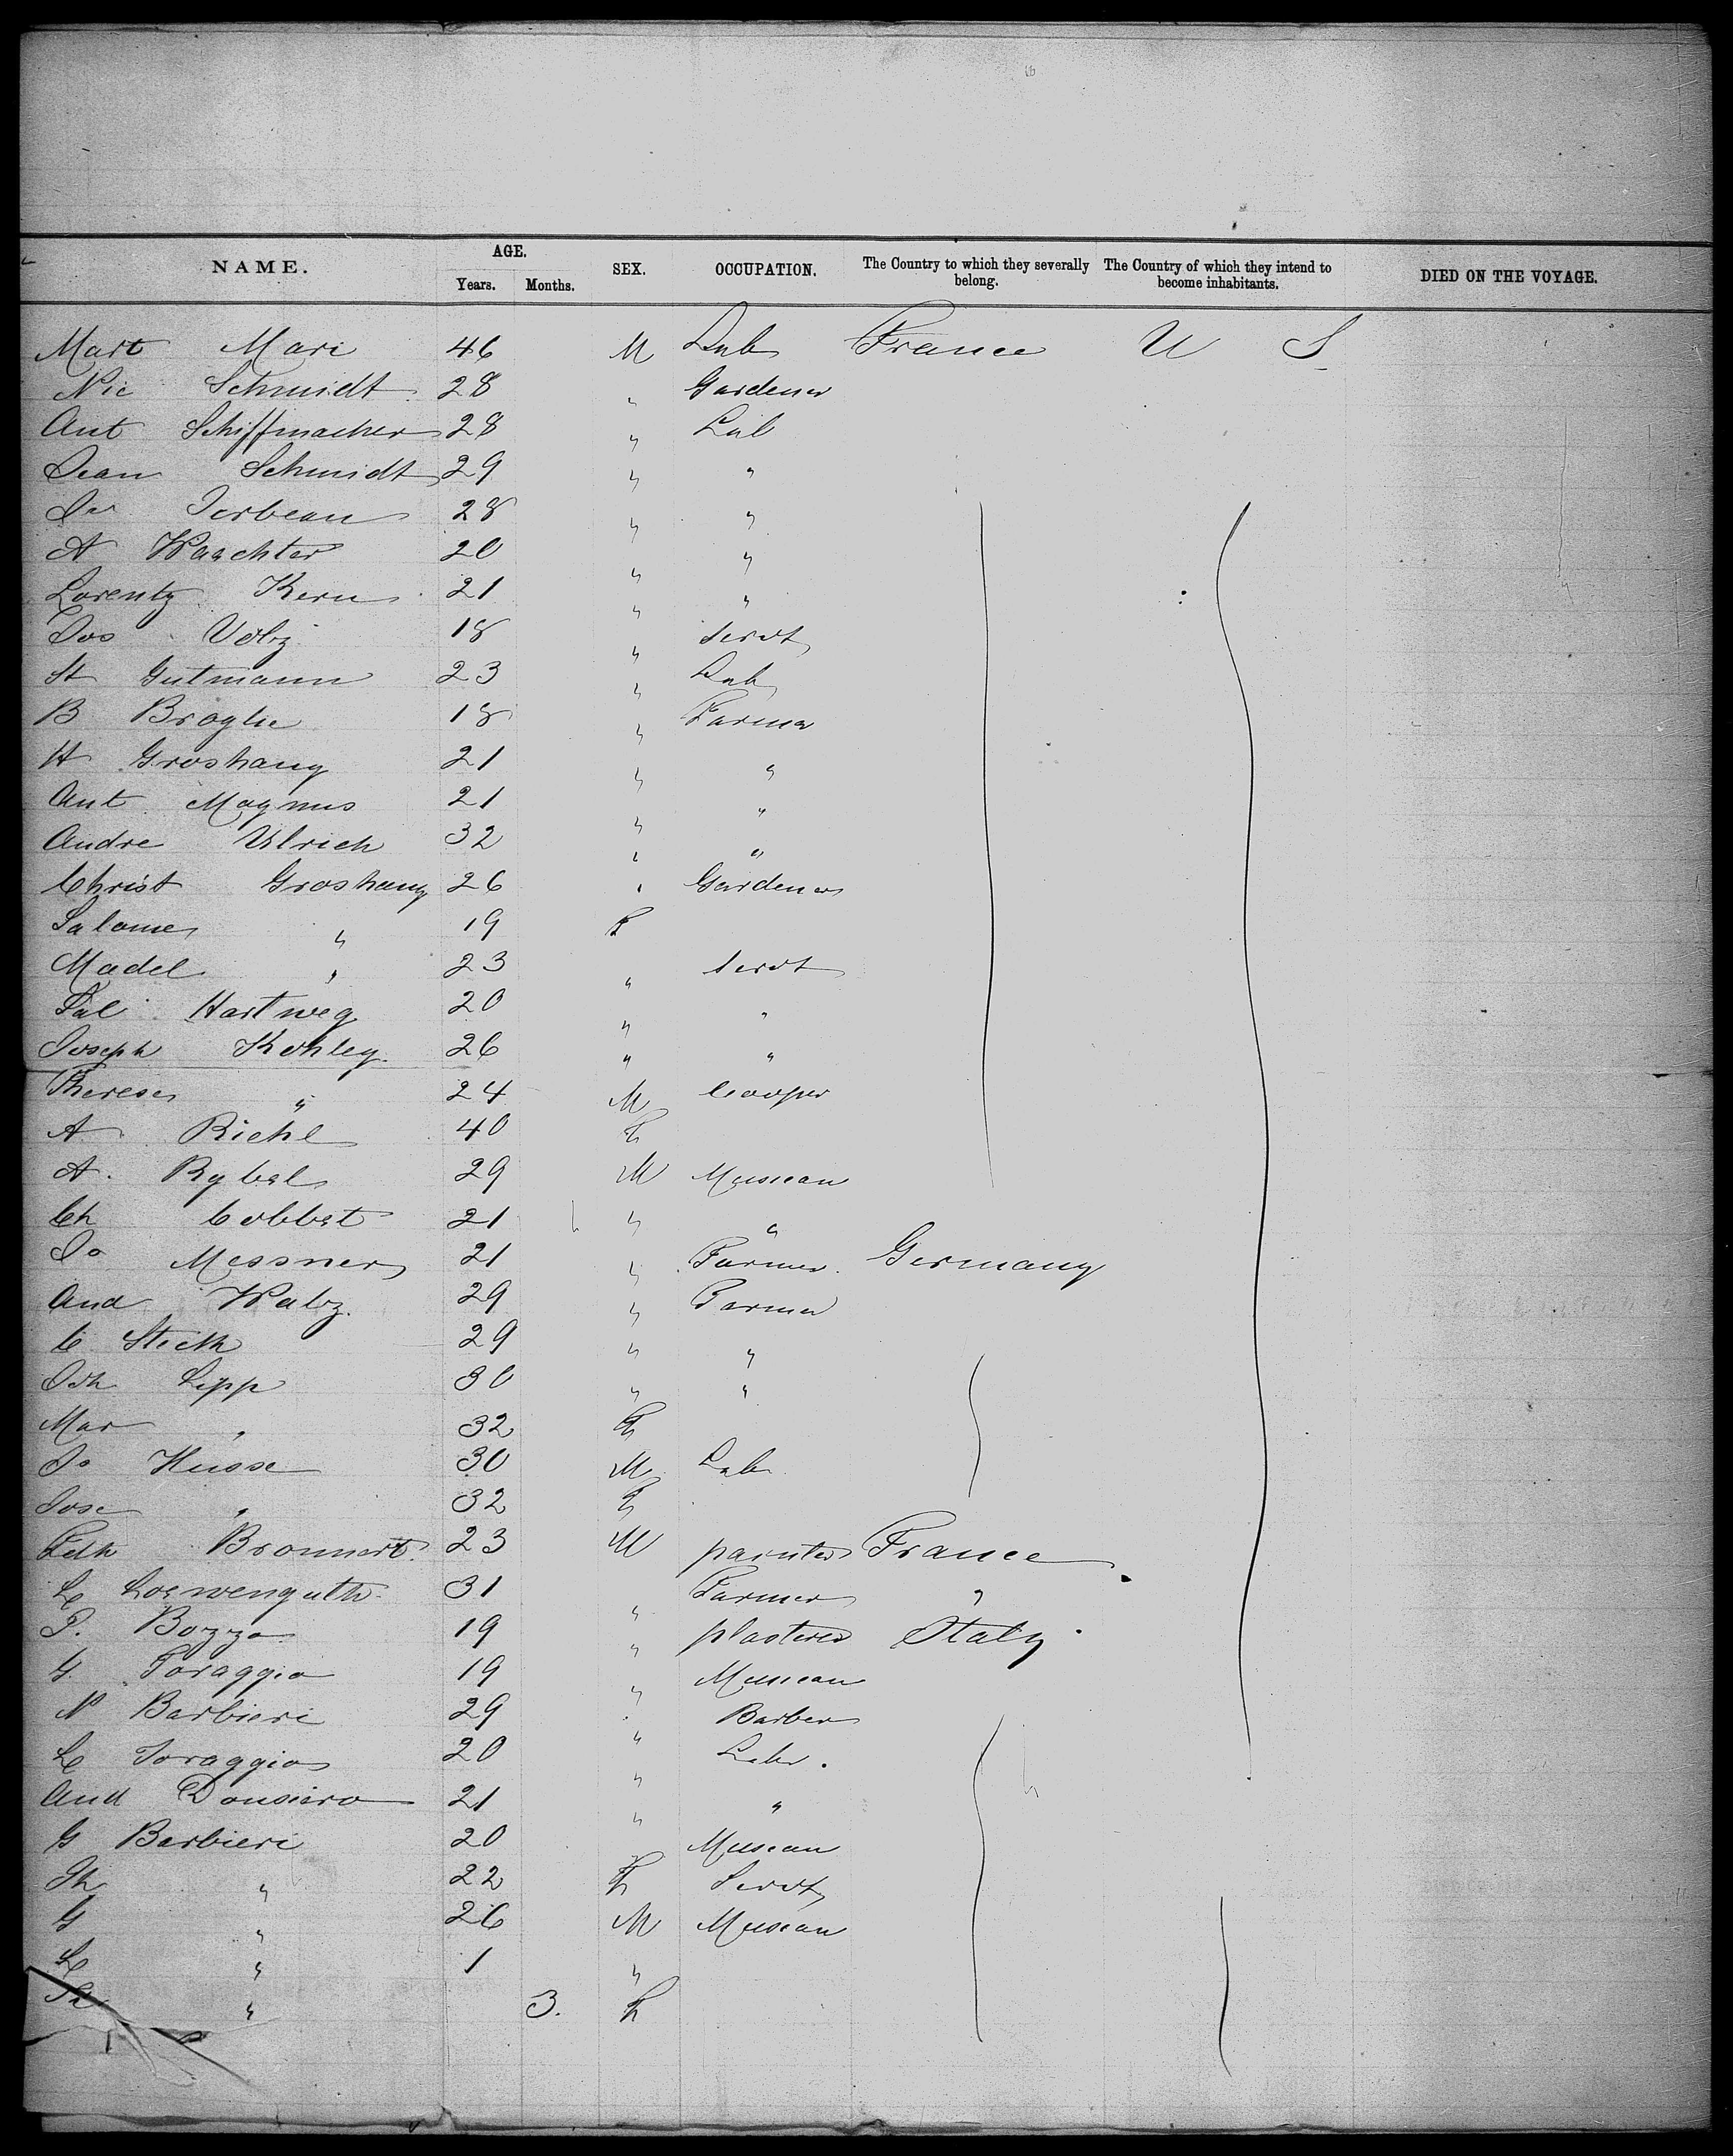 NAME. AGE. Years. Months. SEX. OCCUPATION. The Country to which they severally belong. The Country of which they intend to become inhabitants. DIED ON THE VOYAGE.
Mart Mari 46 M Lab France U S
Nic Schmidt 28 " Gardener
Ant Schiffmacher 28 " Lab
Jean Schmidt 29 " "
Jos Jerbean 28 " "
A Waechter 20 " "
Lorentz Kern 21 " "
Jos Volz 18 " Servt
St Gutmann 23 " Lab
B Broglie 18 " Farmer
H Groshang 21 " "
Ant Magnus 21 " "
Andre Ulrich 32 " "
Christ Groshang 26 " Gardener
Salome " 19 F
Madel " 23 " Servt
Sal Hartweg 20 " "
Joseph Kohley 26 " "
Therese " 24 M Cooper
A Riehl 40 F
A. Rybel 29 M Musican
Ch Cobbet 21 " "
Jo Messner 21 " Farmer Germany
And Walz 29 " Farmer
C Stieh 29 " "
Joh Lipp 30 " "
Mar " 32 F
Jo Husse 30 M Lab
Jose " 32 F
Bronnert 23 M painter France
L Loewenguth 31 " Farmer "
P. Bozzo 19 " plasterer Italy
G Toraggio 19 " Musican
N Barbieri 29 " Barber
L Toraggio 20 " Labr.
And Donsiero 21 " "
G Barbieri 20 " Musican
Th " 22 F Servt
G " 26 M Musican
L " 1 "
" 3. F